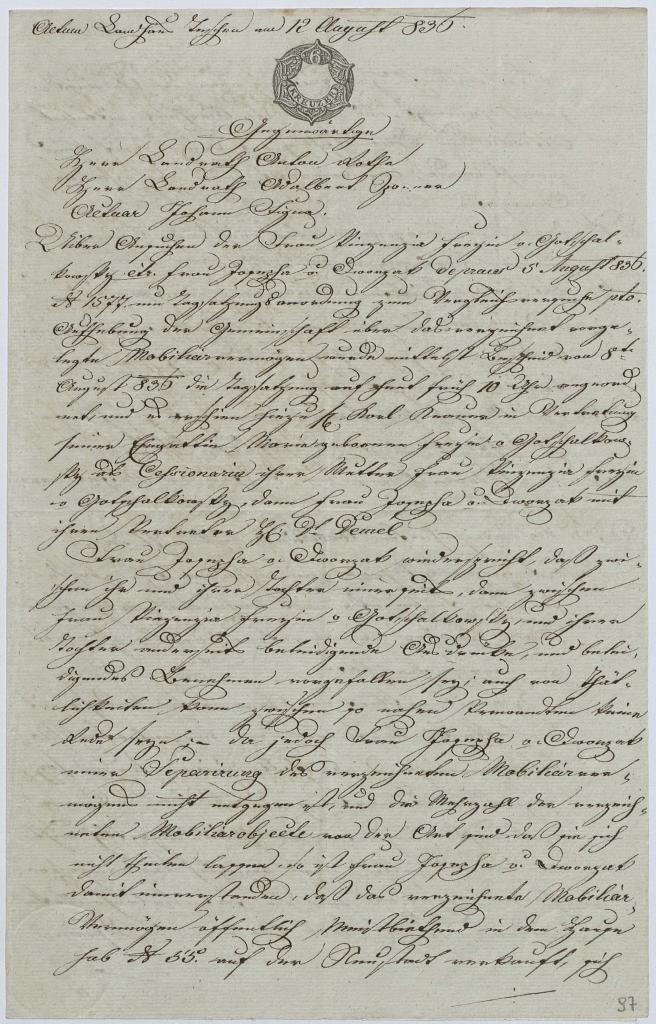 Actum Landhaus Teschen am 12 August 836.
6
KREUZER
Gegenwärtige
Herr Landrath Anton Rothe
Herr Landrath Adalbert
Actuar Johann
Uiber Ansuchen der Frau Vinzenzia Freyin v. Gotschal-
kowsky etc. Frau Josepha v. Dworzak de praes 5 August 836.
N 1577 um Tagsatzungsanordnung zum Vergleichversuche pto.
Aufhebung der Gemeinschaft über das verzeichnet vorge-
legte Mobiliarvermögen wurde mittelst Bescheid von 8t.
August 836 die Tagsatzung auf heut früh 10 Uhr angeord-
net, und es erschien hiezu H. Karl in Vertretung
seiner Ehegattin Marie geborenen Freyin v Gotschalkow-
sky als Cessionarin ihrer Mutter Frau Vinzenzia Freyin
v Gotschalkowsky, dann Frau Josepha v. Dworzak mit
ihrem Vertreter H. Dr. Demel
Frau Josepha v. Dworzak widerspricht, daß zwi-
schen ihr und ihrer Tochter einerseits, dann zwischen
Frau Vinzenzia Freyin v Gotschalkowsky und ihrer
Tochter anderseits beleidigende Ausdrücke, und belei-
digendes Benehmen vorgefallen sey; auch von Thät-
lichkeiten kann zwischen so nahen Verwandten keine
Rede seyn; – da jedoch Frau Josepha v. Dworzak
einer Separirung des verzeichneten Mobiliarver-
mögens nicht entgegen ist, und die Mehrzahl der verzeich-
neten Mobiliarobjecte von der Art sind daß sie sich
nicht theilen lassen, so ist Frau Josepha v. Dworzak
damit einverstanden, daß das verzeichnete Mobiliar-
Vermögen öffentlich Meistbiethend in dem Hause
hab N 55. auf der Neustadt verkauft, sich
87